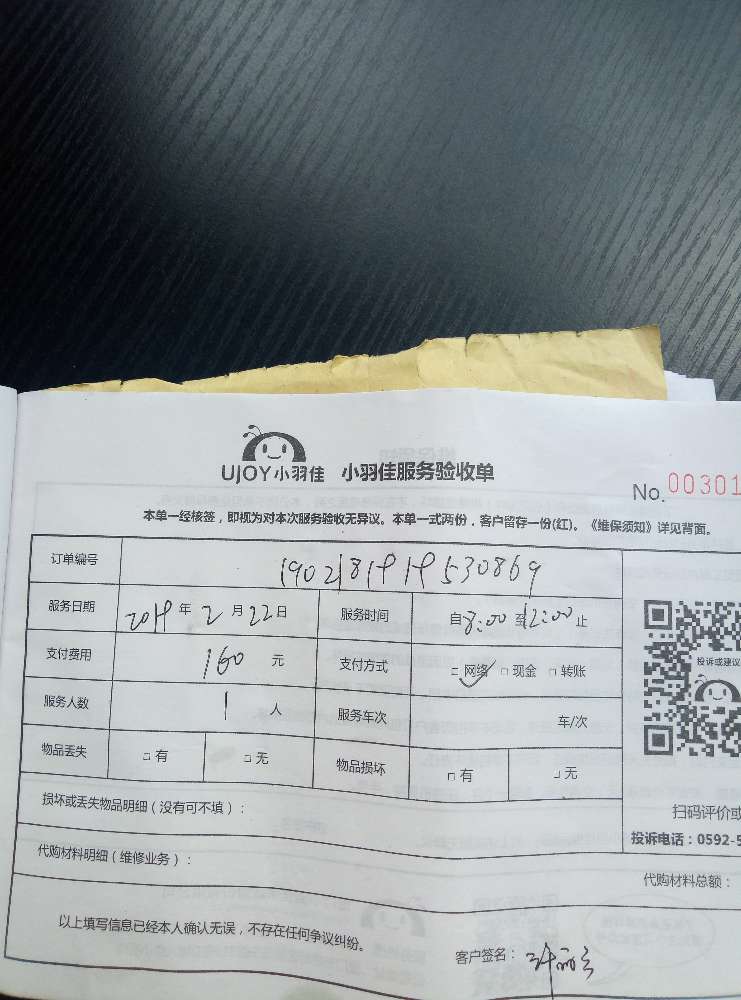 UJOY小羽佳 小羽佳服务验收单
No. 00301
本单一经核签，即视为对本次服务验收无异议。本单一式两份，客户留存一份(红)。《维保须知》详见背面。
订单编号 1902181919530869
服务日期 2019 年 2 月 22 日 服务时间 自 8:00 至 12:00 止
支付费用 160 元 支付方式 □ 网络 □ 现金 □ 转账
服务人数 1 人 服务车次 车/次
物品丢失 □ 有 □ 无 物品损坏 □ 有 □ 无
投诉或建议
损坏或丢失物品明细（没有可不填）：
扫码评价或
投诉电话：0592-5
代购材料明细（维修业务）：
代购材料总额：
以上填写信息已经本人确认无误，不存在任何争议纠纷。
客户签名：